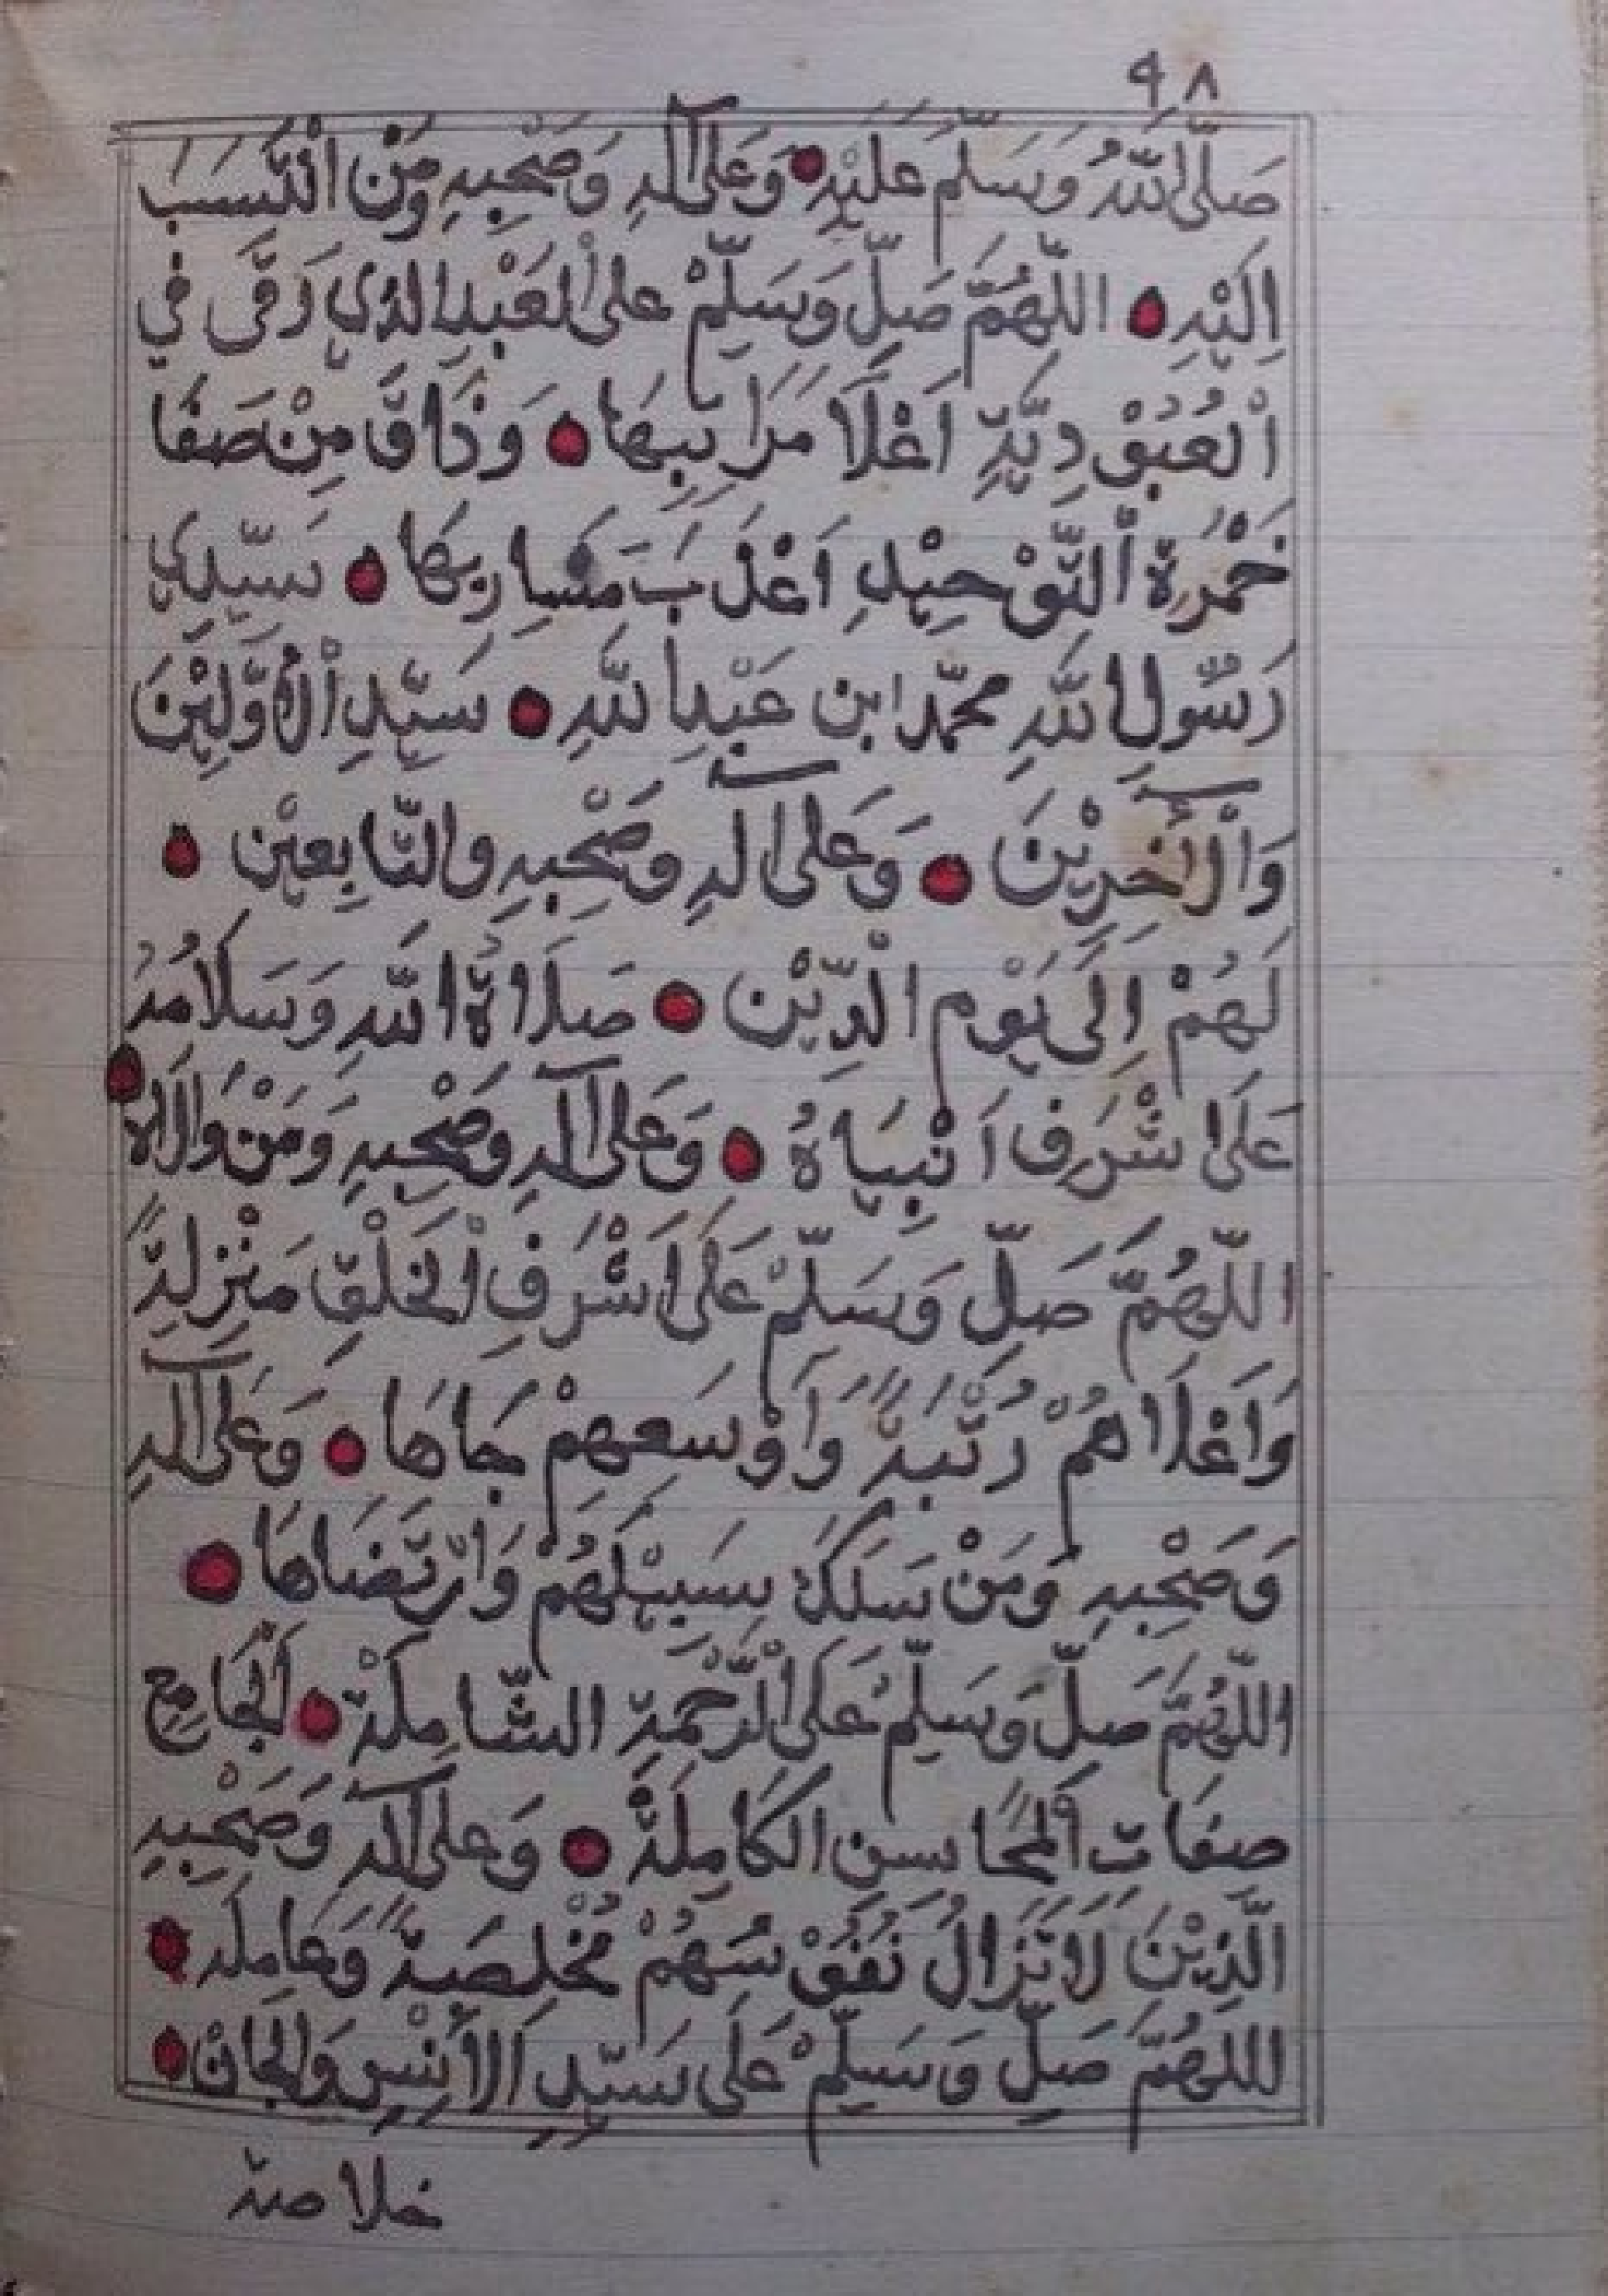 ٩٨
صَلَّى اللّٰهُ وَسَلَّمَ عَلَيْهِ وَعَلَى آلِهِ وَصَحْبِهِ وَمَنْ انْتَسَبَ
اِلَيْهِ اللّٰهُمَّ صَلِّ وَسَلِّمْ عَلى الْعَبْدِ الذي رَقَّى في
الْعُبُوْدِيَّةِ اَعْلَا مَرَاتِبِهَا وَذَاقَ مِنْ صَفَا
خَمْرَةِ التَّوْحِيْدِ اَعْذَبَ مَشَارِبِهَا سَيِّدِي
رَسُوْلِ اللّٰهِ محمّد ابن عَبْدِ اللّٰهِ سَيِّدِ الْأَوَّلِيْنَ
وَالْأَخِرِيْنَ وَعَلى آلِهِ وَصَحْبِهِ والتَّابِعِيْن
لَهُمْ اِلَى يَوْمِ الدِّيْن صَلَاةُ اللّٰهِ وَسَلَامُهُ
عَلَى اشْرَفِ اَنْبِيَاهُ وَعَلى آلِهِ وَصَحْبِهِ وَمَنْ وَالَاهُ
اللّٰهُمَّ صَلِّ وَسَلِّمْ عَلَى اَشْرَفِ الْخَلْقِ مَنْزِلَةً
وَاَعْلَاهُمْ رُتْبَةً وَاَوْسَعِهِمْ جَاهَا وَعَلَى آلِهِ
وَصَحْبِهِ وَمَنْ سَلَكَ سَبِيْلَهُمْ وَارْتَضَاهَا
اللّٰهُمَّ صَلِّ وَسَلِّمْ عَلَى الرَّحْمَةِ الشَّامِلَةْ اَلْجَامِعِ
صِفَاتِ الْمَحَاسِنِ الكَامِلَةْ وَعَلى آلِهِ وَصَحْبِهِ
الَّذِيْنَ لَا تَزَالُ نُفُوْسُهُمْ مُخْلِصَةً وَعَامِلَه
اللهُمَّ صَلِّ وَسَلِّمْ عَلَى سَيِّدِ الْأِنْسِ وَالْجَانْ
خلاصة